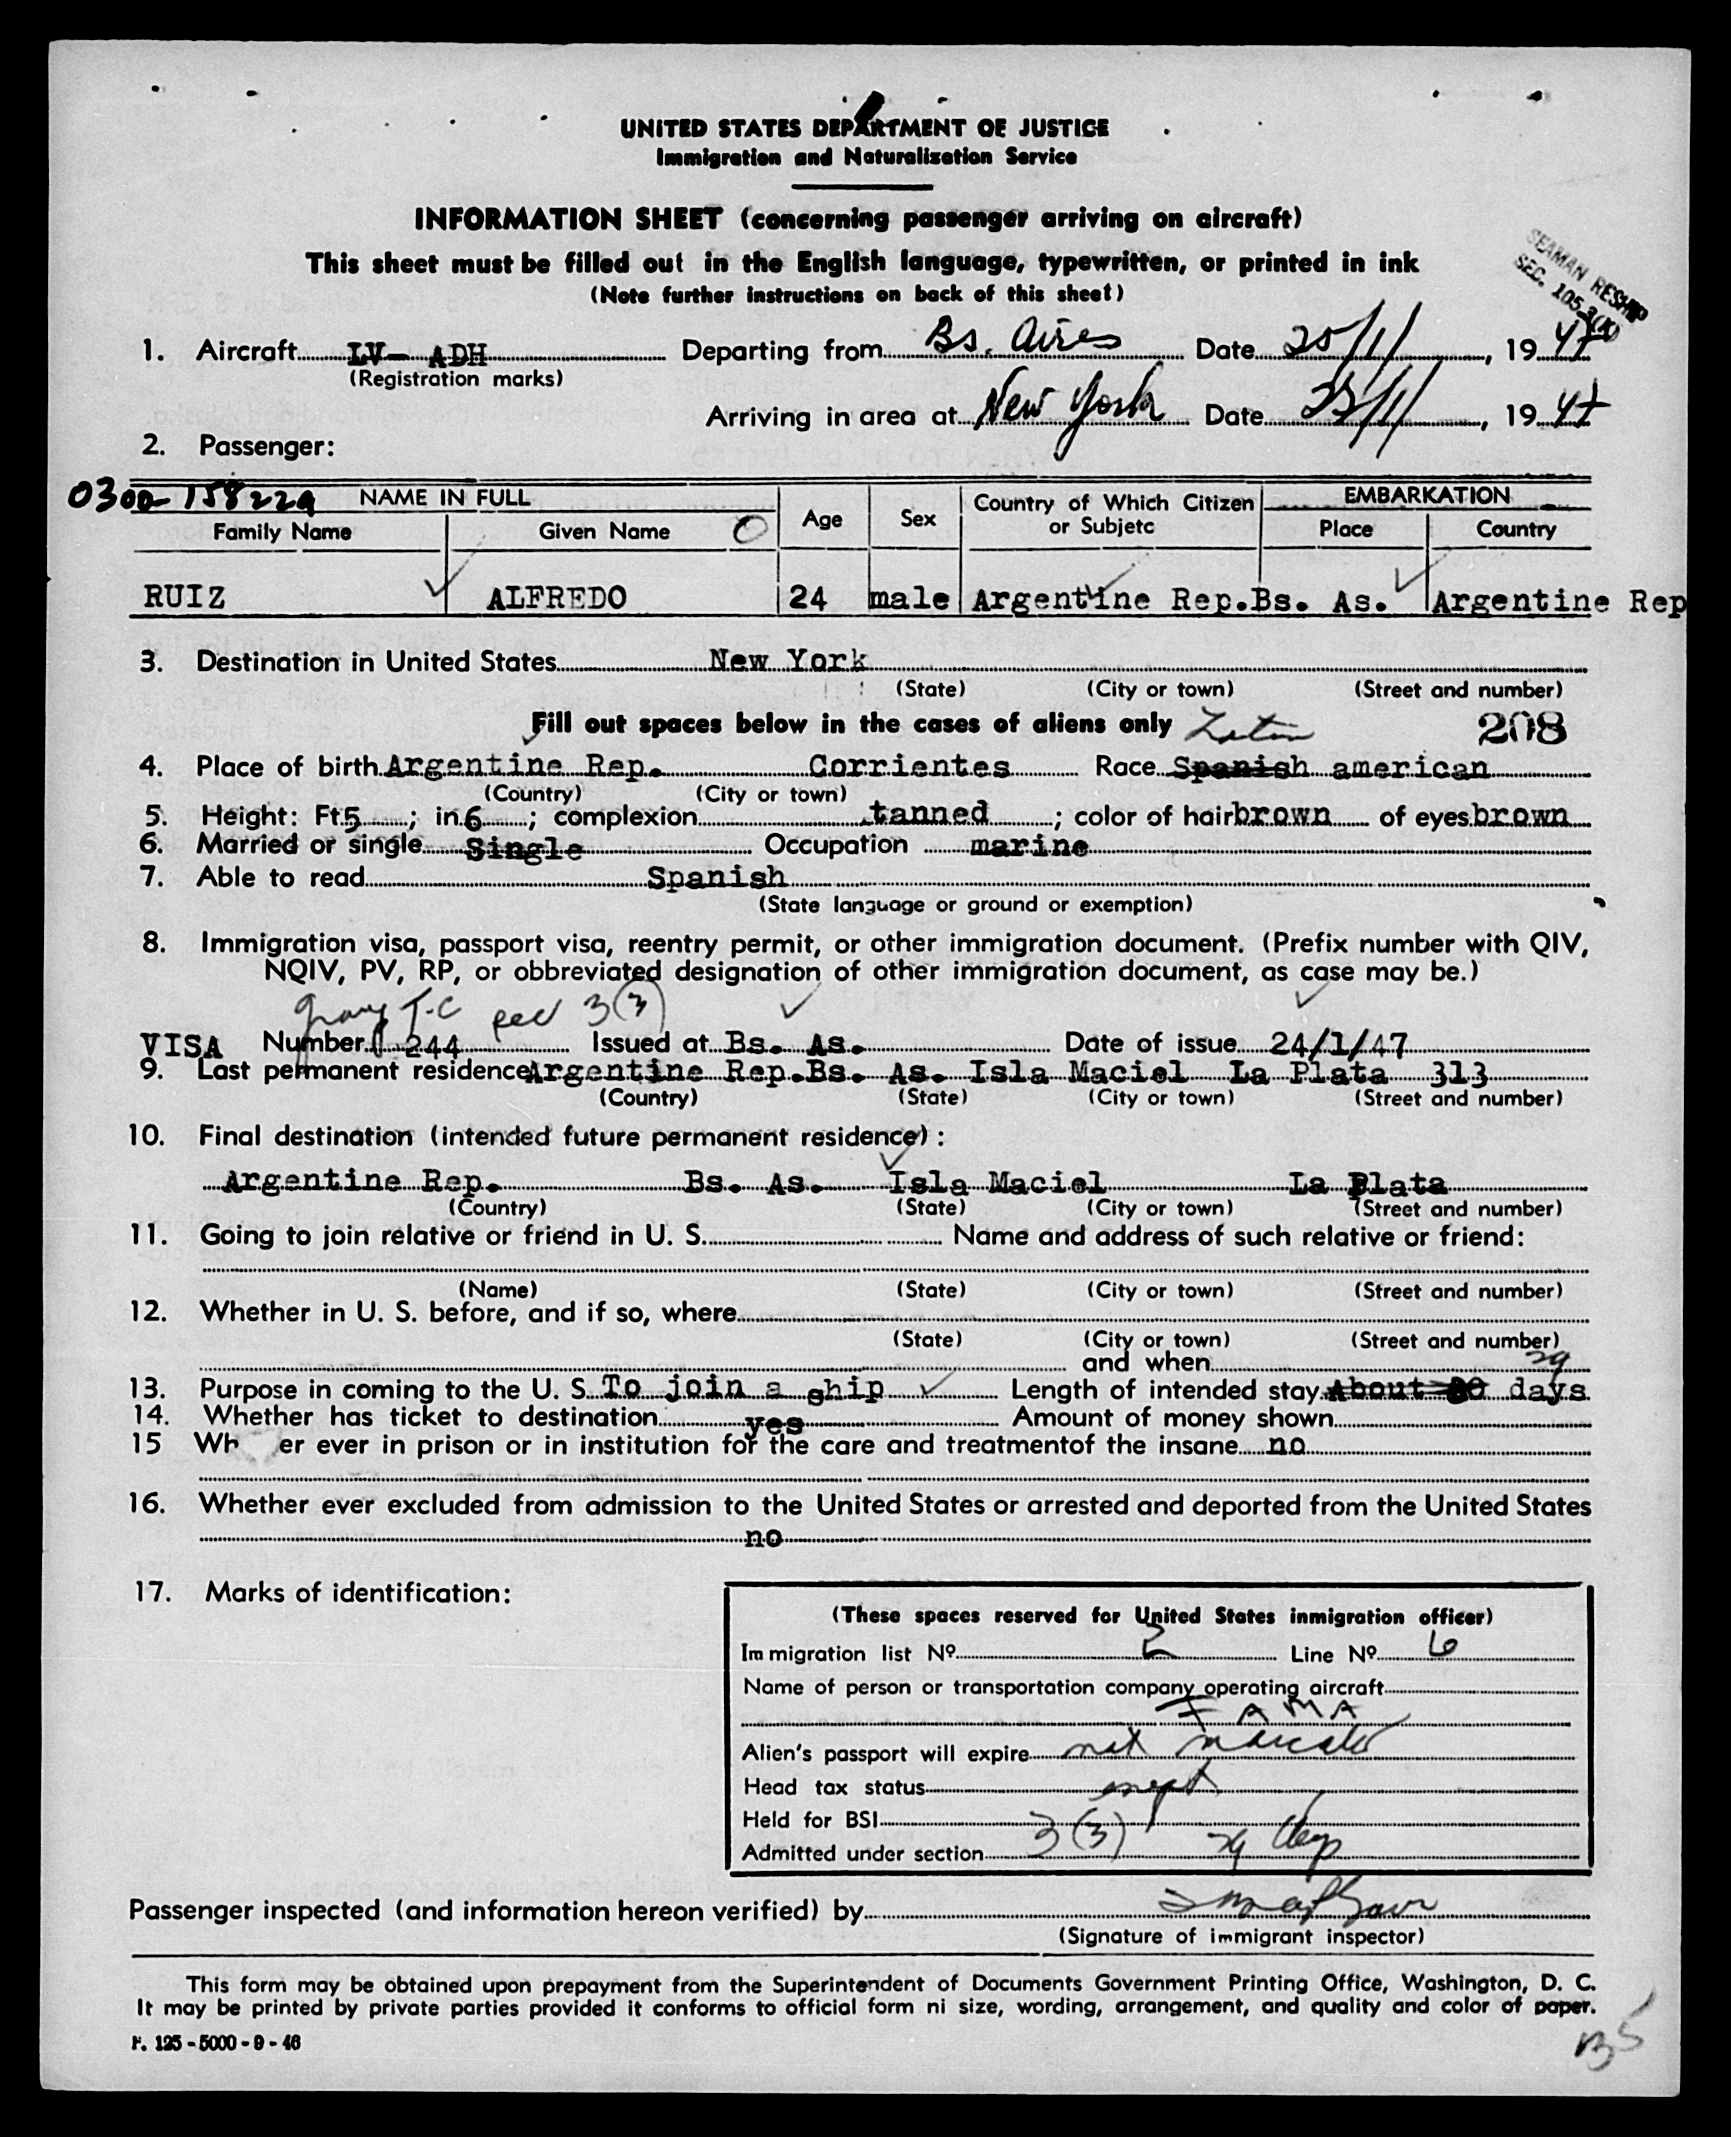 UNITED STATES DEPARTMENT OF JUSTICE
Immigration and Naturalization Service
INFORMATION SHEET (concerning passenger arriving on aircraft)
This sheet must be filled out in the English language, typewritten, or printed in ink
(Note further instructions on back of this sheet)
SEAMAN RESHIP
SEC. 105.3(b)
1. Aircraft LV- ADH Departing from Bs. Aires Date 25/1/, 1947
(Registration marks)
Arriving in area at New York Date /1/, 1947
2. Passenger:
0300-158229 NAME IN FULL Age Sex Country of Which Citizen or Subjetc EMBARKATION
Family Name Given Name Place Country
RUIZ ALFREDO 24 male Argentine Rep. Bs. As. Argentine Rep
3. Destination in United States New York
(State) (City or town) (Street and number)
Fill out spaces below in the cases of aliens only Latin 208
4. Place of birth Argentine Rep. Corrientes Race Spanish american
(Country) (City or town)
5. Height: Ft. 5 ; in. 6 ; complexion tanned ; color of hair brown of eyes brown
6. Married or single Single Occupation marine
7. Able to read Spanish
(State language or ground or exemption)
8. Immigration visa, passport visa, reentry permit, or other immigration document. (Prefix number with QIV,
NQIV, PV, RP, or obbreviated designation of other immigration document, as case may be.)
3(3)
VISA Number 244 Issued at Bs. As. Date of issue 24/1/47
9. Last permanent residence Argentine Rep. Bs. As. Isla Maciel La Plata 313
(Country) (State) (City or town) (Street and number)
10. Final destination (intended future permanent residence) :
Argentine Rep. Bs. As. Isla Maciel La Plata
(Country) (State) (City or town) (Street and number)
11. Going to join relative or friend in U. S. Name and address of such relative or friend:
(Name) (State) (City or town) (Street and number)
12. Whether in U. S. before, and if so, where
(State) (City or town) (Street and number)
and when
29
13. Purpose in coming to the U. S. To join a ship Length of intended stay About 20 days
14. Whether has ticket to destination yes Amount of money shown
15 Wh er ever in prison or in institution for the care and treatmentof the insane no
16. Whether ever excluded from admission to the United States or arrested and deported from the United States
no
17. Marks of identification:
(These spaces reserved for United States inmigration officer)
Immigration list Nº 2 Line Nº 6
Name of person or transportation company operating aircraft
FAMA
Alien's passport will expire not
Head tax status
Held for BSI
Admitted under section 3(3) 29 days
Passenger inspected (and information hereon verified) by
(Signature of immigrant inspector)
This form may be obtained upon prepayment from the Superintendent of Documents Government Printing Office, Washington, D. C.
It may be printed by private parties provided it conforms to official form ni size, wording, arrangement, and quality and color of paper.
F. 125 - 5000 - 9 - 46